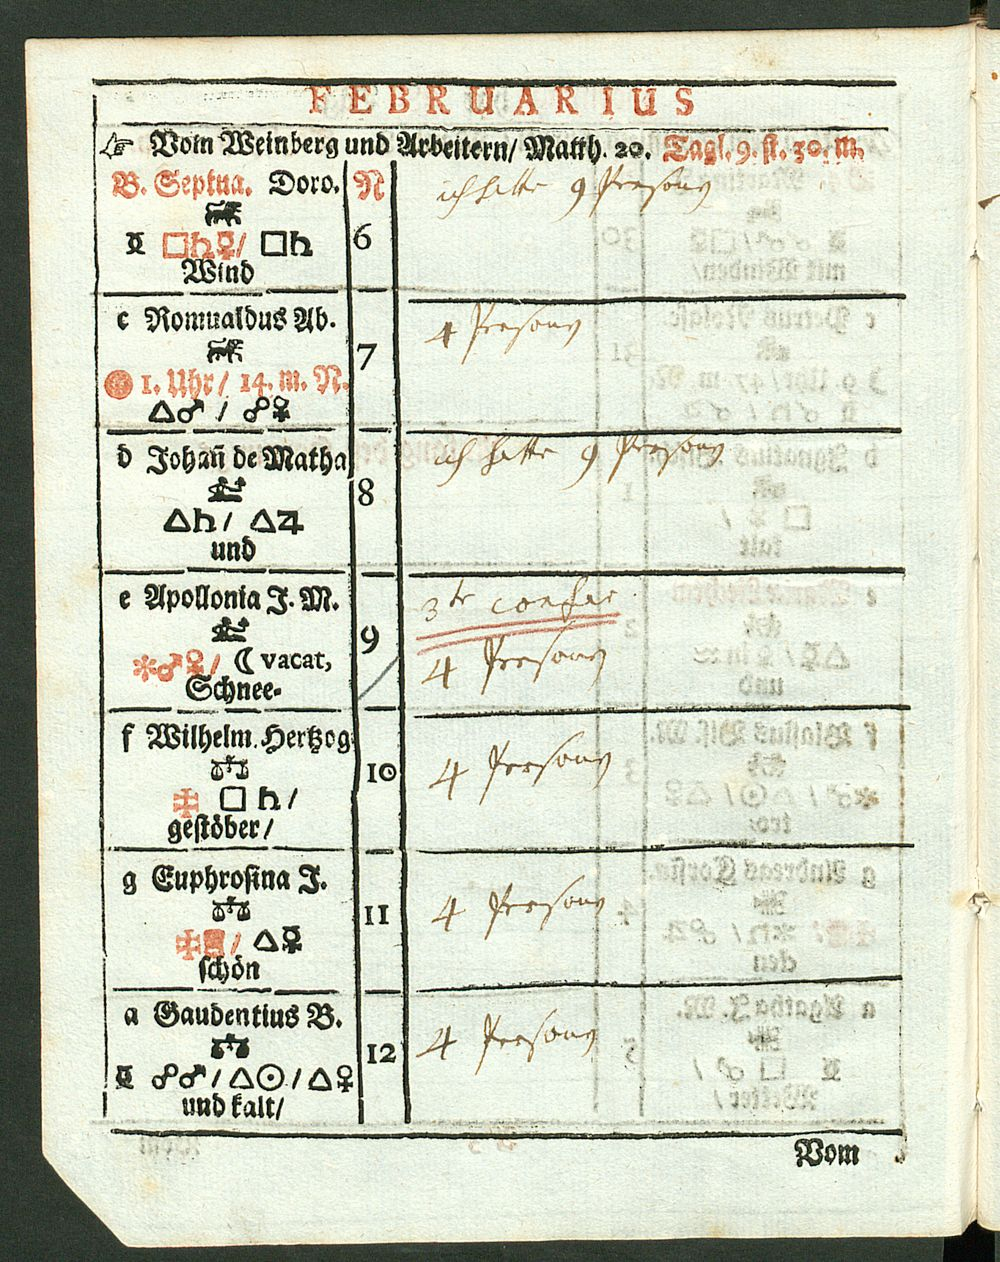 FEBRUARIUS
☞ Vom Weinberg und Arbeitern/ Matth. 20. Tagl. 9. st. 50. m.
B. Septua. Doro. N
ich hatte 9 Persony
♌ 6
□♄☿/ □♄
Wind
c Romualdus Ab.
4 Persony
7
1. Uhr/ 14. m. N.
△♂ / ☍♀
d Johañ de Matha
ich hatte 9 Persony
8
△♄/ △♃
und
e Apollonia J. M.
3te
9
✻♂♀/ ☾ vacat,
4 Persony
Schnee-
f Wilhelm. Hertzog
4 Persony
10
✠ □ ♄/
gestöber/
g Euphrosina J.
4 Persony
11
△☿
schön
a Gaudentius B.
4 Persony
12
☍♂/△☉/△♀
und kalt/
Vom